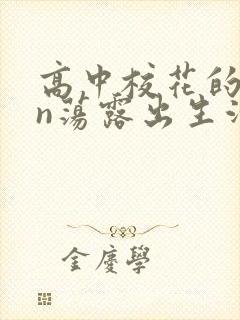 高中校花的
n荡露出生
金慶學